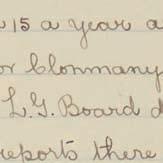 15 a year a
or Clonmany
L.G. Board d
reports there